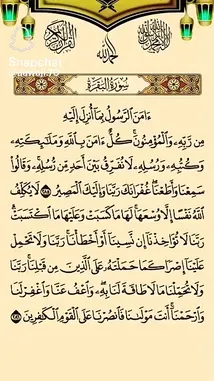 Snapchat
سُورَةُ البَقَرَةِ
ءَامَنَ ٱلرَّسُولُ بِمَآ أُنزِلَ إِلَيْهِ
مِن رَّبِّهِۦ وَٱلْمُؤْمِنُونَ كُلٌّ ءَامَنَ بِٱللَّهِ وَمَلَٰٓئِكَتِهِۦ
وَكُتُبِهِۦ وَرُسُلِهِۦ لَا نُفَرِّقُ بَيْنَ أَحَدٍ مِّن رُّسُلِهِۦ وَقَالُوا۟
سَمِعْنَا وَأَطَعْنَا غُفْرَانَكَ رَبَّنَا وَإِلَيْكَ ٱلْمَصِيرُ ٢٨٥ لَا يُكَلِّفُ
ٱللَّهُ نَفْسًا إِلَّا وُسْعَهَا لَهَا مَا كَسَبَتْ وَعَلَيْهَا مَا ٱكْتَسَبَتْ
رَبَّنَا لَا تُؤَاخِذْنَآ إِن نَّسِينَآ أَوْ أَخْطَأْنَا رَبَّنَا وَلَا تَحْمِلْ
عَلَيْنَآ إِصْرًا كَمَا حَمَلْتَهُۥ عَلَى ٱلَّذِينَ مِن قَبْلِنَا رَبَّنَا
وَلَا تُحَمِّلْنَا مَا لَا طَاقَةَ لَنَا بِهِۦ وَٱعْفُ عَنَّا وَٱغْفِرْ لَنَا
وَٱرْحَمْنَآ أَنتَ مَوْلَىٰنَا فَٱنصُرْنَا عَلَى ٱلْقَوْمِ ٱلْكَٰفِرِينَ ٢٨٦